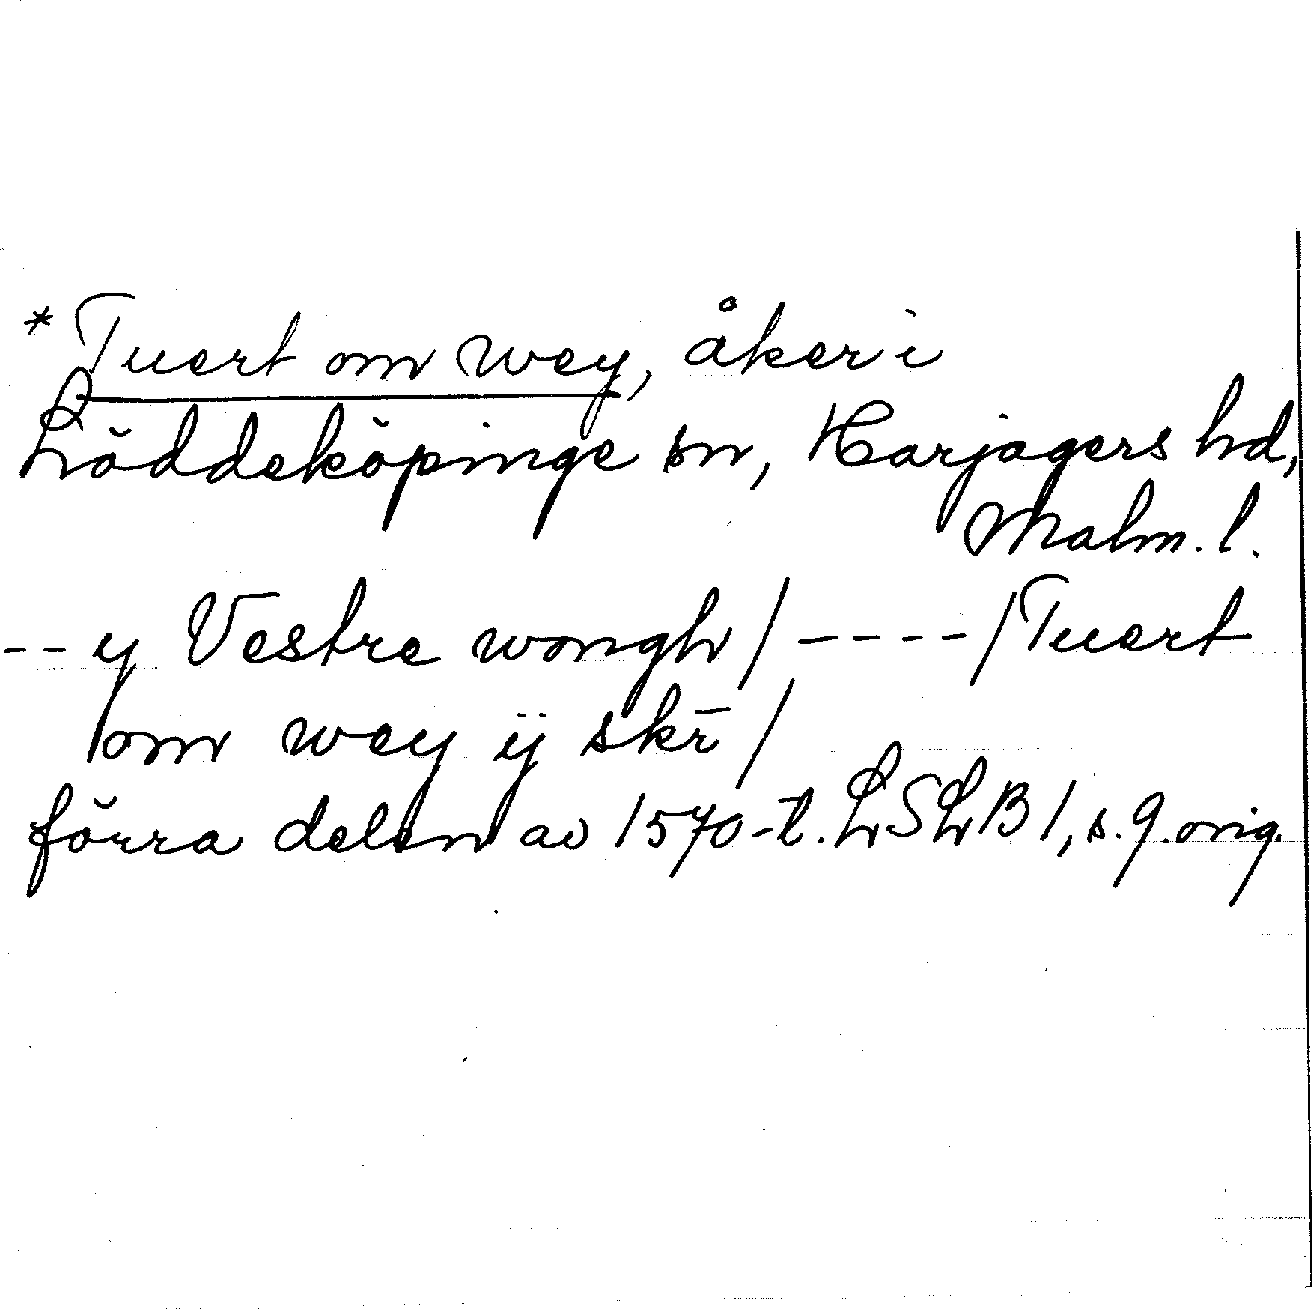 * Tuert om wey, åker i
Löddeköpinge sn, Harjagers hd,
Malm. l.
-- y Vestre wongh / ---- / Tuert
om wey ÿ skr̄ /
förra delen av 1570-t. LSLB 1, s. 9. orig.